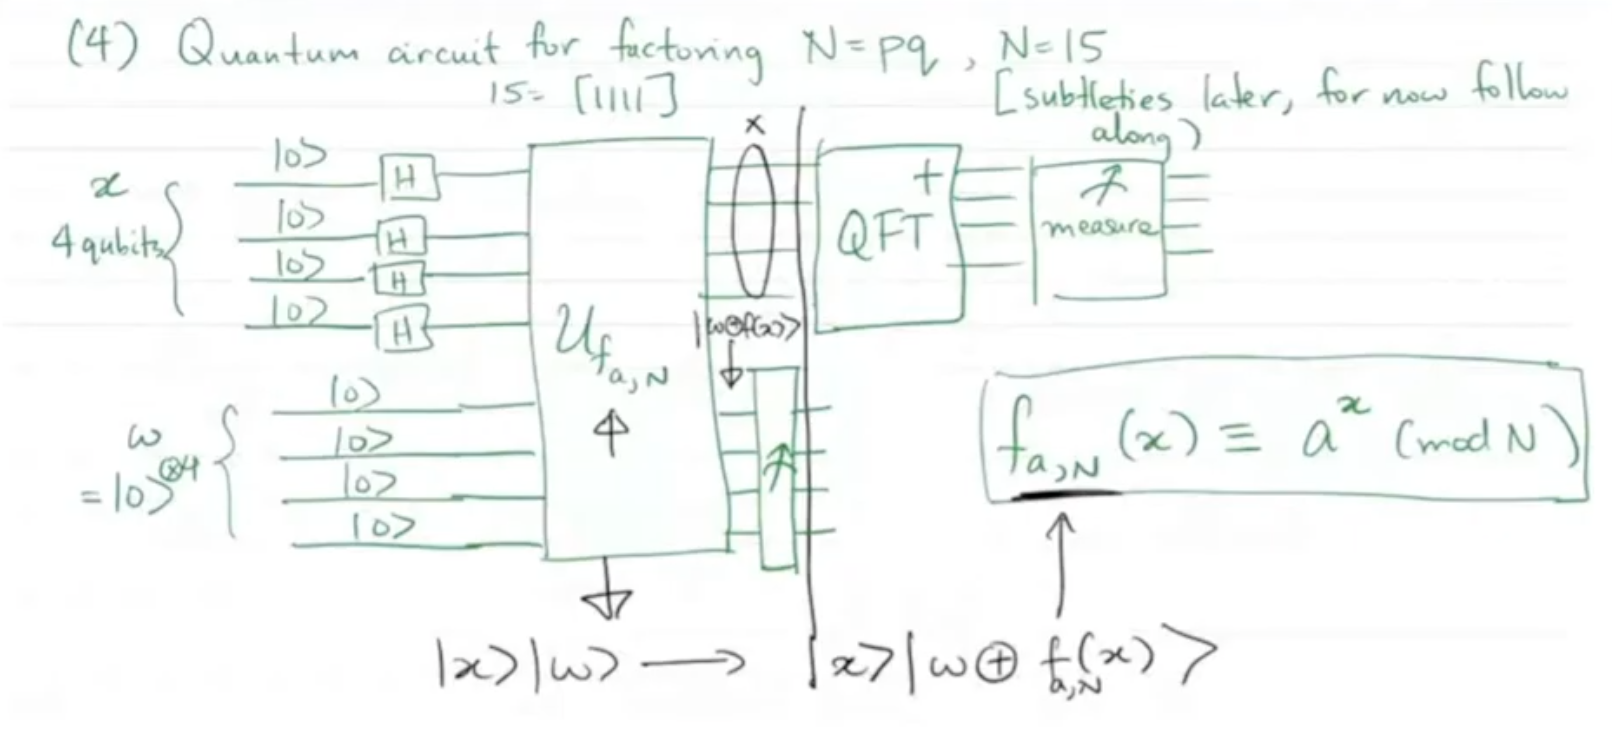 (4) Quantum circuit for factoring N=pq, N=15
15= [1111]
[subtleties later, for now follow
along)
x
4 qubits
|0> H
|0> H
|0> H
|0> H
U_{f_{a,N}}
x
|w⊕f(x)>
QFT†
measure
w
=|0>^{⊗4}
|0>
|0>
|0>
|0>
f_{a,N}(x) ≡ a^x (mod N)
|x>|w> ⟶ |x>|w ⊕ f_{a,N}(x)>